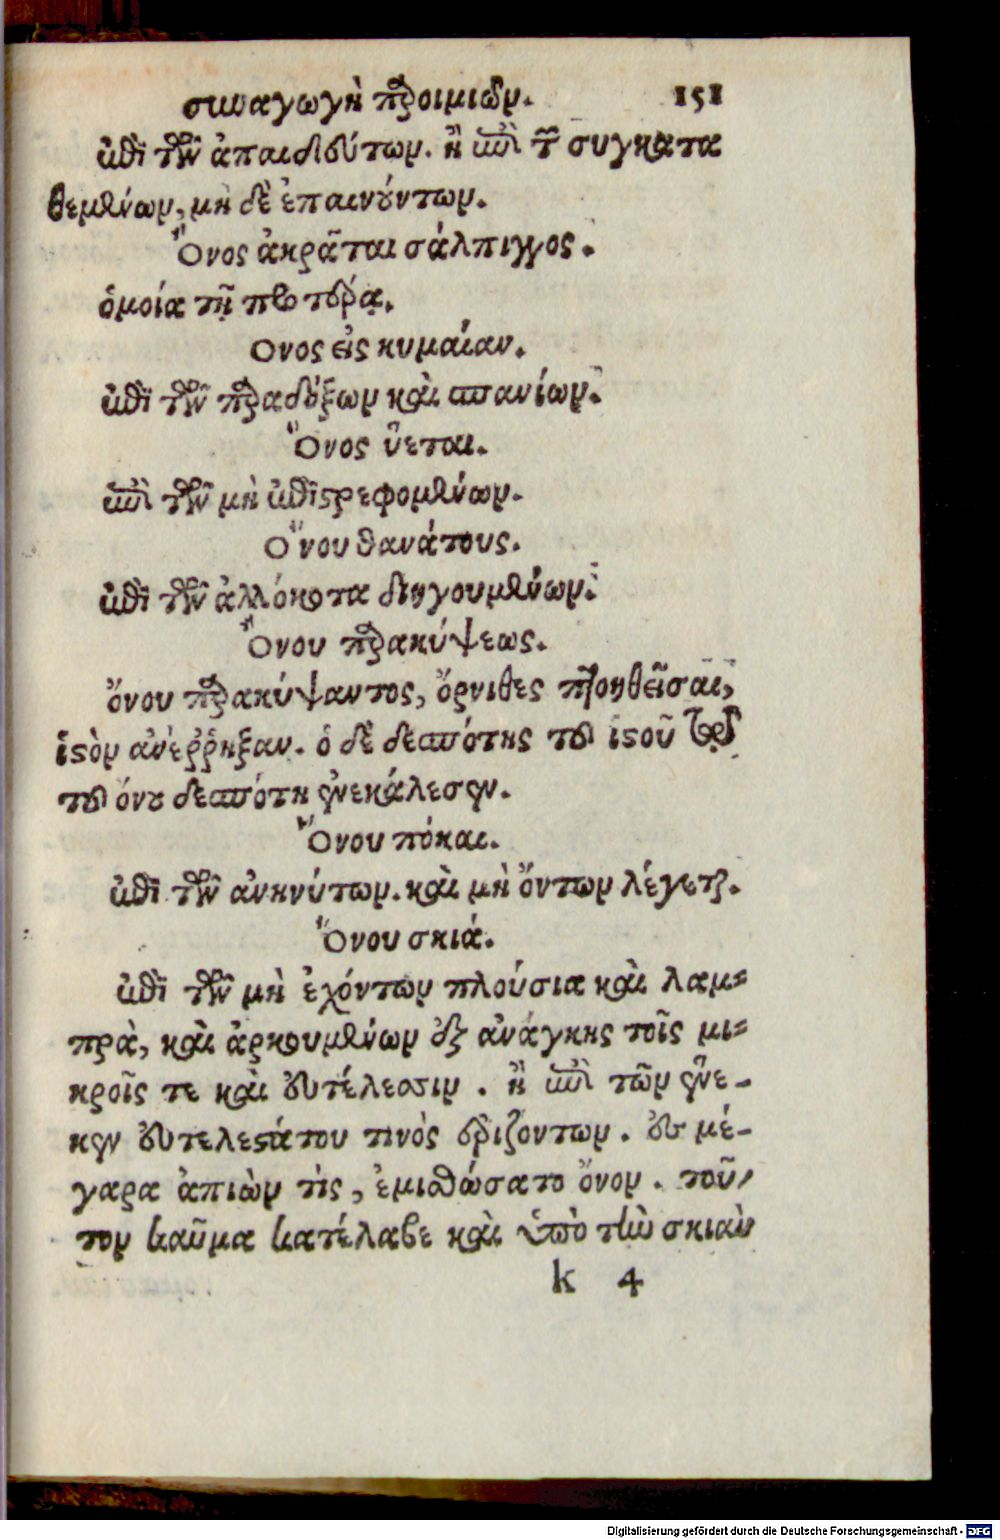 συναγωγὴ παροιμιῶν. 151
ἐπὶ τῶν ἀπαιδεύτων. ἢ ἐπὶ τῶν συγκατα
θεμένων, μὴ δὲ ἐπαινούντων.
Ὄνος ἀκρᾶται σάλπιγγος.
ὁμοία τῇ προτέρᾳ.
Ονος εἰς κυμαίαν.
ἐπὶ τῶν παραδόξων καὶ σπανίων.
Ὄνος ὕεται.
ἐπὶ τῶν μὴ ἐπιστρεφομένων.
Ὄνου θανάτους.
ἐπὶ τῶν ἀλλόκοτα διηγουμένων.
Ὄνου παρακύψεως.
ὄνου παρακύψαντος, ὄρνιθες πτοηθεῖσαι,
ἱστὸν ἀνέῤῥηξαν. ὁ δὲ δεσπότης τοῦ ἱστοῦ
τοῦ ὄνου δεσπότῃ ἐνεκάλεσεν.
Ὄνου πόκαι.
ἐπὶ τῶν ἀνηνύτων. καὶ μὴ ὄντων λέγεται.
Ὄνου σκιά.
ἐπὶ τῶν μὴ ἐχόντων πλούσια καὶ λαμ-
πρὰ, καὶ ἀρκουμένων ἐξ ἀνάγκης τοῖς μι-
κροῖς τε καὶ εὐτελέσιν. ἢ ἐπὶ τῶν ἕνε-
κεν εὐτελεστάτου τινὸς ἐριζόντων. εἰς μέ-
γαρα ἀπιὼν τὶς, ἐμισθώσατο ὄνον. τοῦ-
τον καῦμα κατέλαβε καὶ ὑπὸ τὴν σκιὰν
k 4
Digitalisierung gefördert durch die Deutsche Forschungsgemeinschaft - DFG